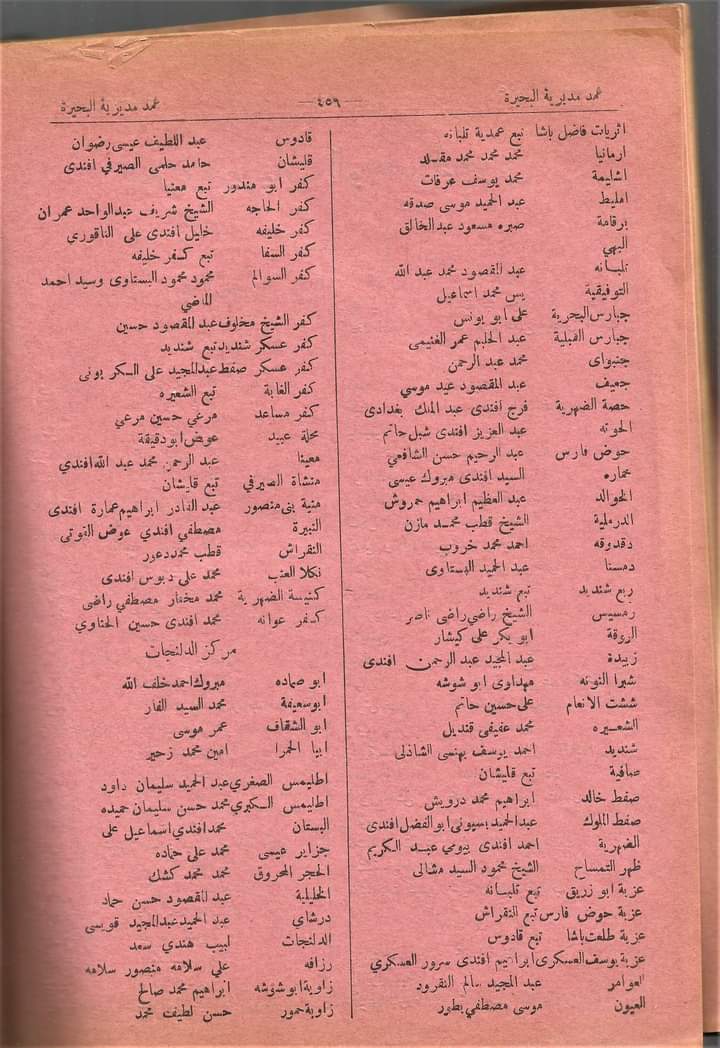 عمد مديرية البحيرة — ٤٥٩ — عمد مديرية البحيرة
اثريات فاضل باشا تبع عمدية تلبانه
ارمانيا محمد محمد محمد مقلد
اشليمة محمد يوسف عرفات
امليط عبد الحميد موسى صدقه
برقامة صبره مسعود عبد الخالق
البهي
تلبانه عبد المقصود محمد عبد الله
التوفيقية يس محمد اسماعيل
جبارس البحرية على ابو يونس
جبارس القبلية عبد الحليم عمر الغنيمى
جنبواى محمد عبد الرحمن
جعيف عبد المقصود عيد موسي
حصة الضهرية فرج افندى عبد الملك بغدادى
الحوته عبد العزيز افندى شبل حاتم
حوض فارس عبد الرحيم حسن الشافعي
عماره السيد افندى مبروك عيسى
الخوالد عبد العظيم ابراهيم حمروش
الدرملية الشيخ قطب محمد مازن
دقدوقه احمد محمد خروب
دمسنا عبد الحميد البستاوى
ربع شنديد تبع شنديد
رمسيس الشيخ راضي راضى ناصر
الروقة ابو بكر على كيشار
زبيدة عبد المجيد عبد الرحمن افندى
شبرا النونه مهداوى ابو شوشه
ششت الانعام على حسين حاتم
الشعيره محمد عفيفي قنديل
شنديد احمد يوسف بهنسى الشاذلى
صافية تبع قليشان
صفط خالد ابراهيم محمد درويش
صفط الملوك عبد الحميد بسيونى ابو الفضل افندى
الضهرية احمد افندى بيومي عبد الكريم
ظهر التمساح الشيخ محمود السيد مشالى
عزبة ابو زريق تبع تلبانه
عزبة حوض فارس تبع النقراش
عزبة طلعت باشا تبع قادوس
عزبة يوسف العسكرى ابراهيم افندى سرور العسكري
العوامر عبد المجيد سالم النقرود
العيون موسى مصطفي بطور
قادوس عبد اللطيف عيسى رضوان
قليشان حامد حلمى الصيرفي افندى
كفر ابو مندور تبع معنيا
كفر الحاجه الشيخ شريف عبد الواحد عمران
كفر خليفه خليل افندى على الناقوري
كفر السقا تبع كفر خليفه
كفر السوالم محمود محمود البستاوى وسيد احمد
الماضي
كفر الشيخ مخلوف عبد المقصود حسين
كفر عسكر شنديد تبع شنديد
كفر عسكر صفط عبد المجيد على السكر يونى
كفر الغابة تبع الشعيره
كفر مساعد مرعي حسين مرعي
محلة عبيد عوض ابو دقيقة
معينا عبد الرحمن محمد عبد الله افندي
منشاة الصيرفي تبع قليشان
منية بنى منصور عبد القادر ابراهيم عمارة افندى
النبيرة مصطفي افندي عوض القوتى
النقراش قطب محمد دعور
نكلا العنب محمد على دبوس افندى
كنيسة الضهرية محمد مختار مصطفي راضى
كفر عوانه محمد افندى حسين الحناوي
مركز الدلنجات
ابو صماده مبروك احمد خلف الله
ابو سعيفة محمد السيد الفار
ابو الشقاف عمر موسى
ابيا الحمرا امين محمد زحير
اطليمس الصغري عبد الحميد سليمان داود
اطليمس الكبري محمد حسن سليمان حميده
البستان محمد افندى اسماعيل على
جزاير عيسى محمد على حماده
الحجر المحروق محمد محمد كشك
الخليلية عبد المقصود حسن حماد
درشاي عبد الحميد عبد المجيد قويسى
الدلنجات لبيب هندي سعد
رزافه علي سلامه منصور سلامه
زاوية ابو شوشه ابراهيم محمد صالح
زاوية حمور حسن لطيف محمد